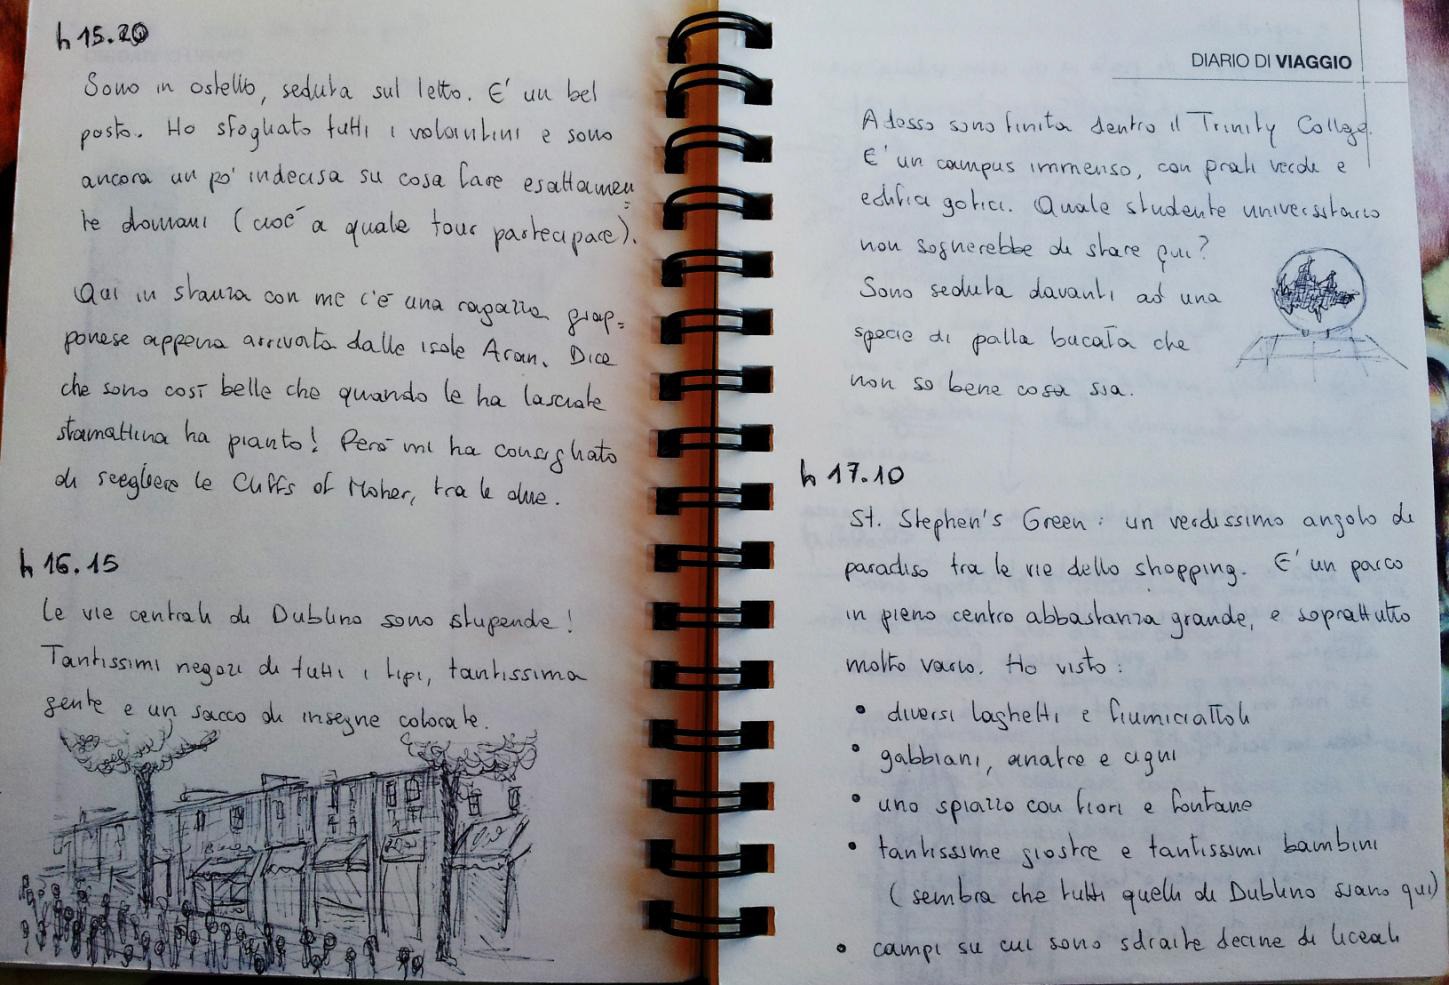 h 15.20
Sono in ostello, seduta sul letto. E' un bel
posto. Ho sfogliato tutti i volantini e sono
ancora un po' indecisa su cosa fare esattamen=
te domani (cioè a quale tour partecipare).
Qui in stanza con me c'è una ragazza giap=
ponese appena arrivata dalle isole Aran. Dice
che sono così belle che quando le ha lasciate
stamattina ha pianto! Però mi ha consigliato
di scegliere le Cliffs of Moher, tra le due.
h 16.15
Le vie centrali di Dublino sono stupende!
Tantissimi negozi di tutti i tipi, tantissima
gente e un sacco di insegne colorate.
DIARIO DI VIAGGIO
Adesso sono finita dentro il Trinity College.
E' un campus immenso, con prati verdi e
edifici gotici. Quale studente universitario
non sognerebbe di stare qui?
Sono seduta davanti ad una
specie di palla bucata che
non so bene cosa sia.
h 17.10
St. Stephen's Green: un verdissimo angolo di
paradiso tra le vie dello shopping. E' un parco
in pieno centro abbastanza grande, e soprattutto
molto vario. Ho visto:
• diversi laghetti e fiumiciattoli
• gabbiani, anatre e cigni
• uno spiazzo con fiori e fontane
• tantissime giostre e tantissimi bambini
(sembra che tutti quelli di Dublino siano qui)
• campi su cui sono sdraite decine di liceali